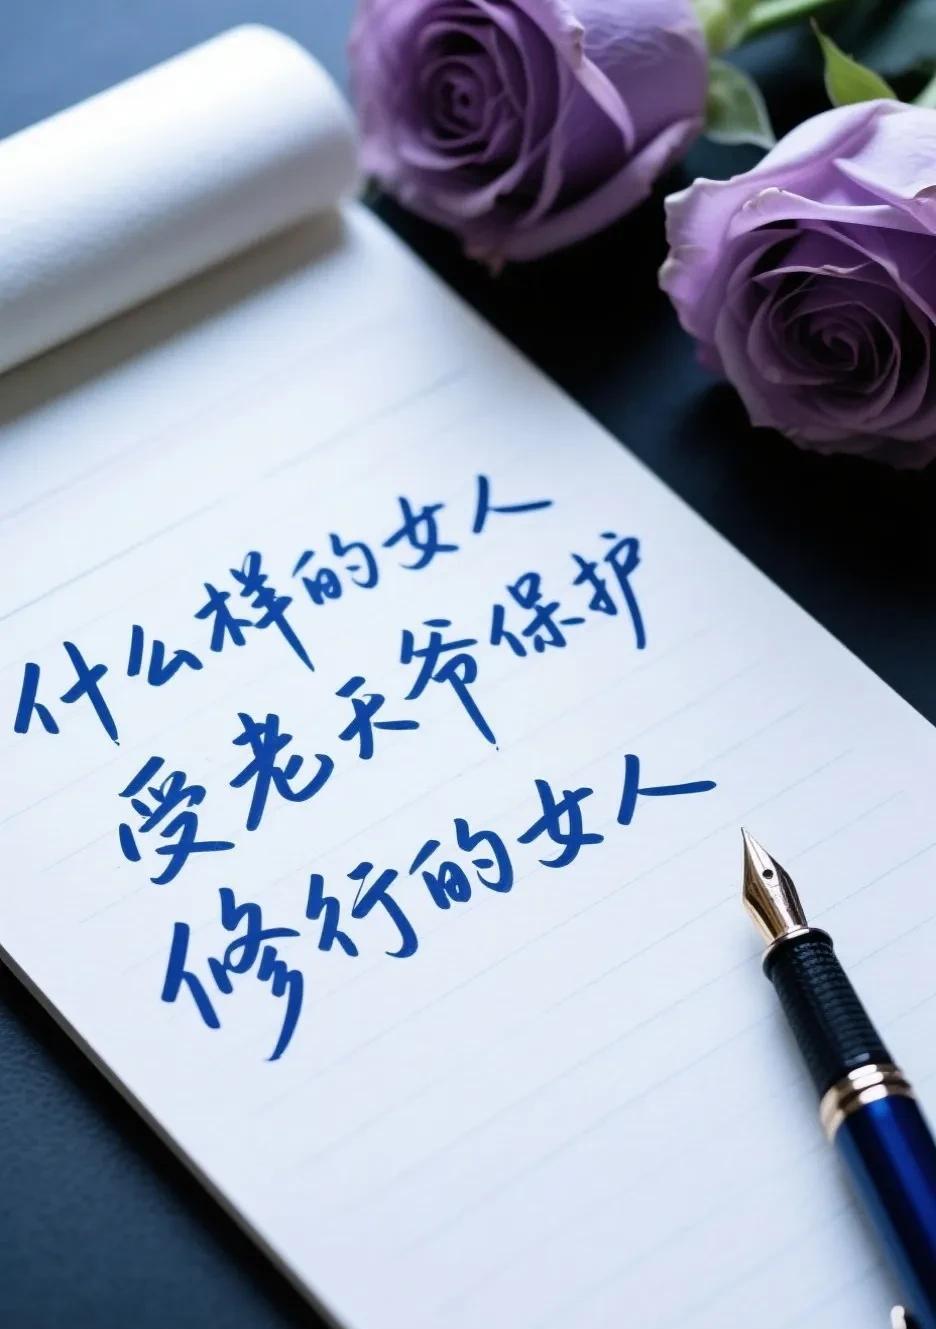 什么样的女人
受老天爷保护
修行的女人